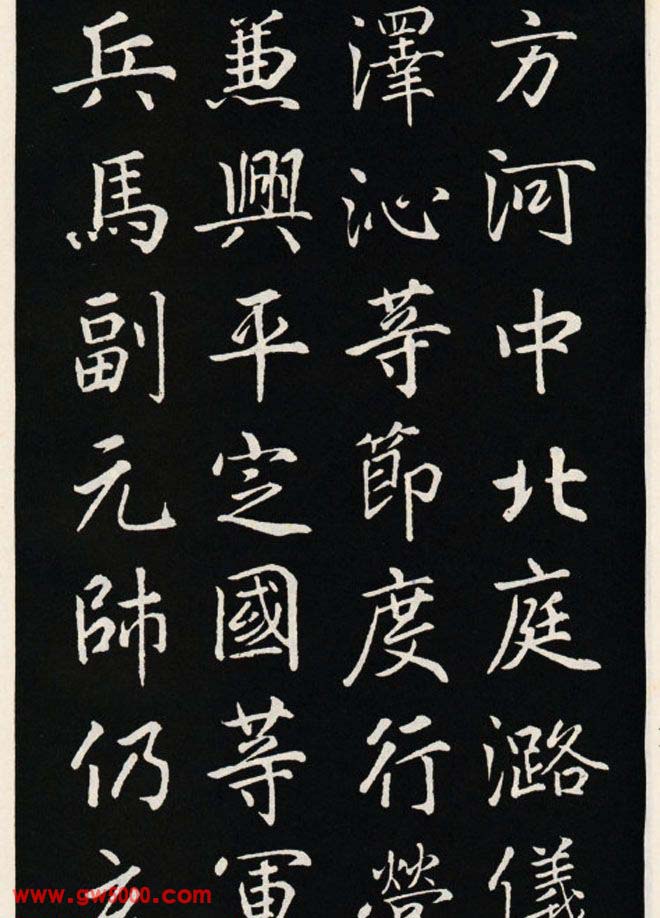 方河中北庭潞儀
澤沁等節度行營
兼興平定國等軍
兵馬副元帥仍充
www.gw5000.com